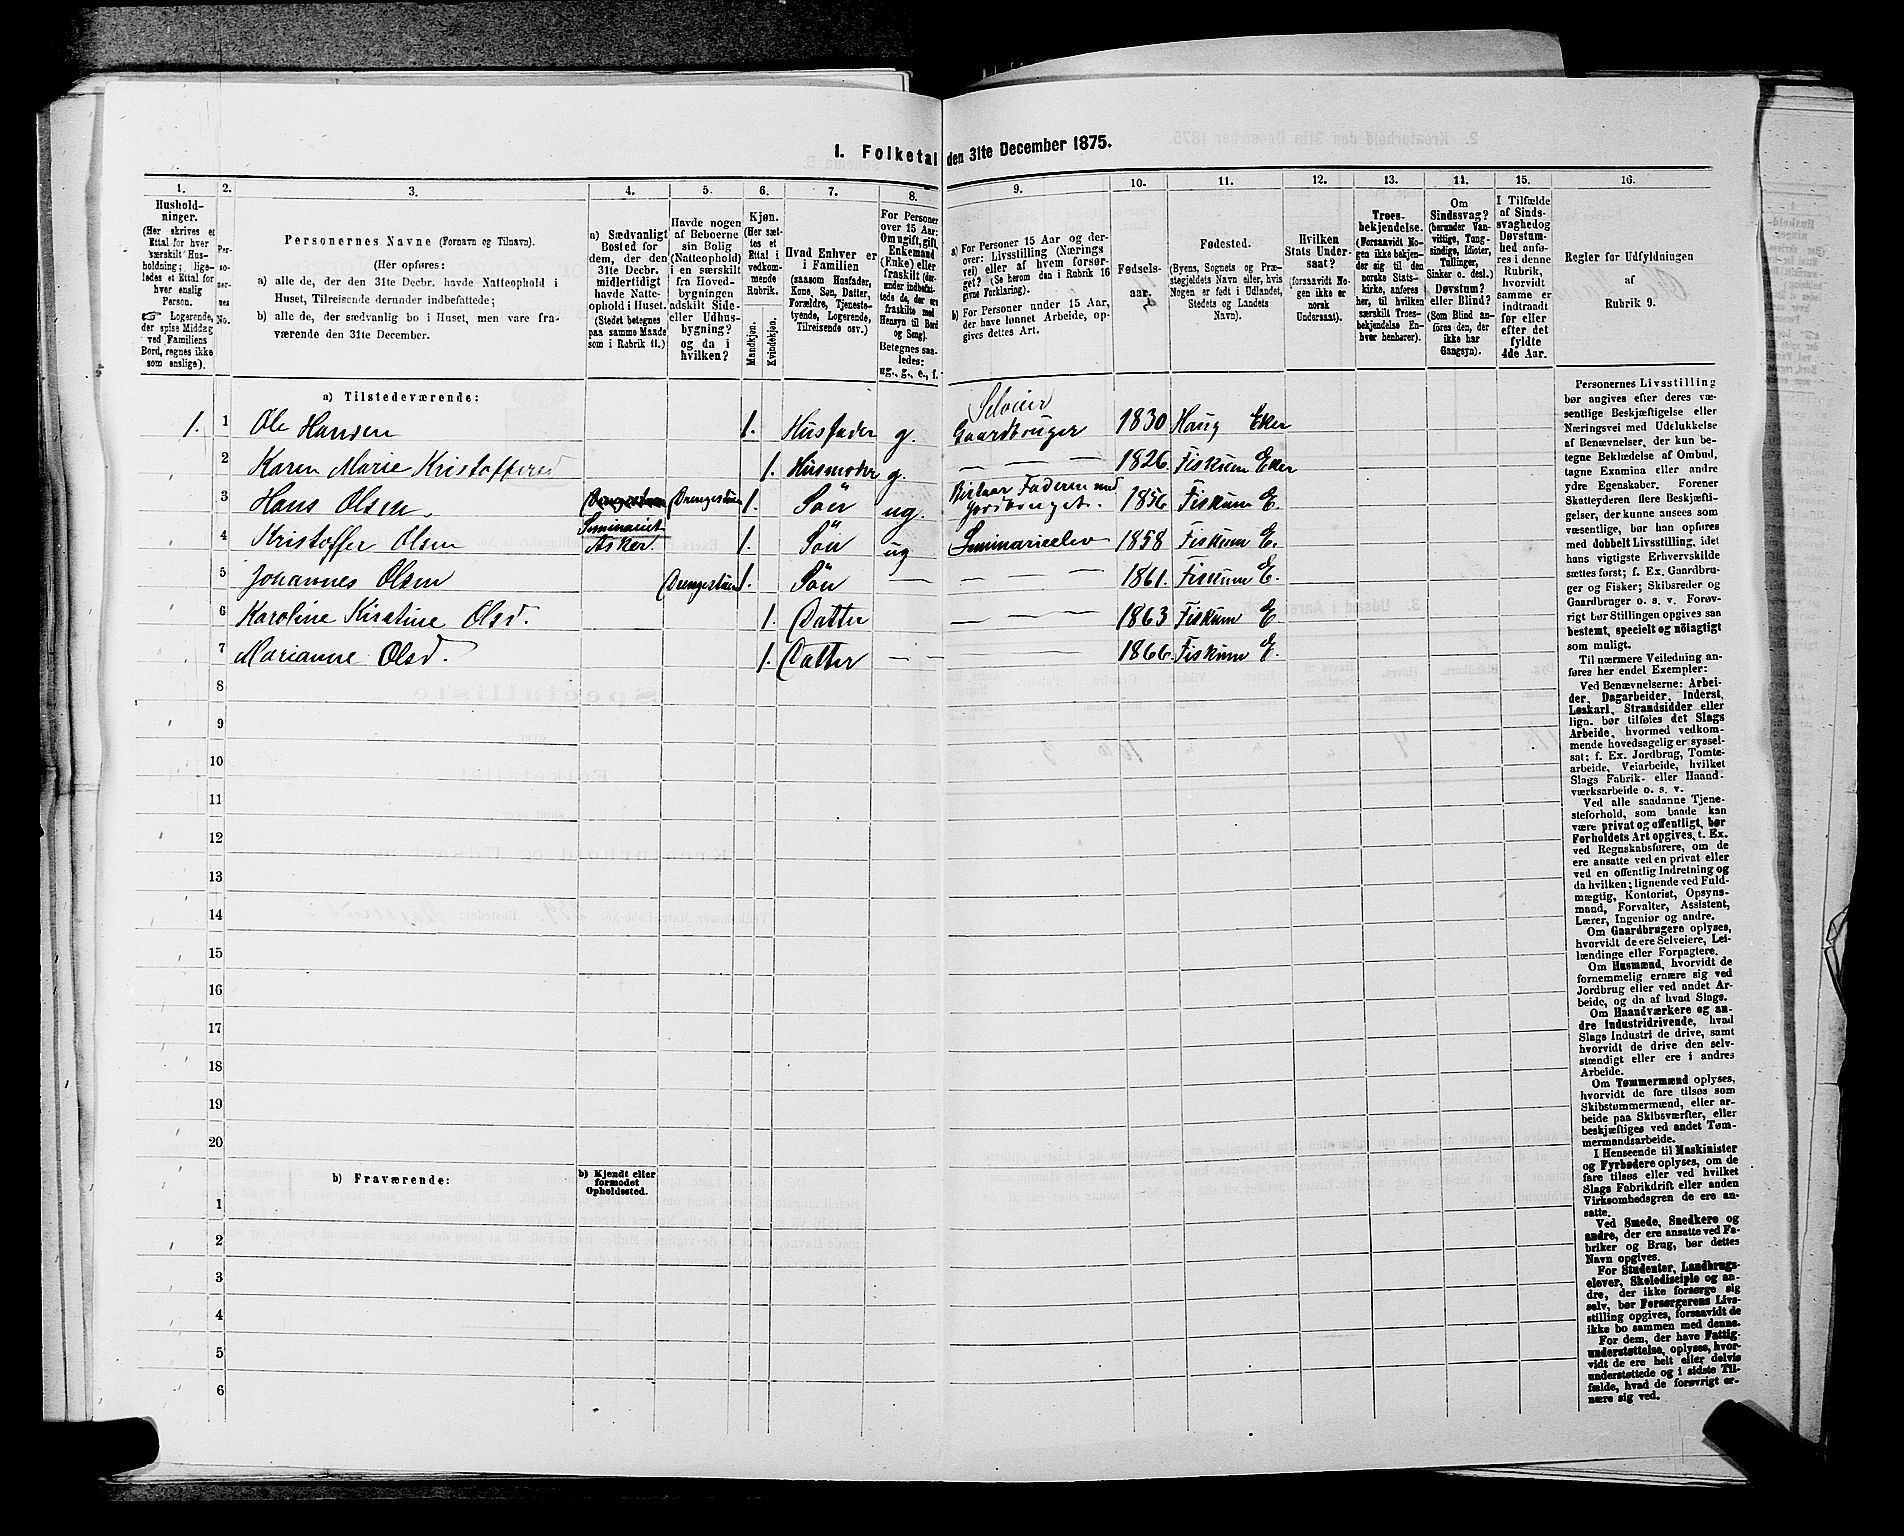 I. Folketal den 31te December 1875.
1. 2. 3. 4. 5. 6. 7. 8. 9. 10. 11. 12. 13. 14. 15. 16.
Hushold-
ninger.
(Her skrives et
Ettal for hver
særskilt Hus-
holdning; lige-
ledes et Ettal for
hver enslig
Person.
☞ Logerende,
der spise Middag
ved Familiens
Bord, regnes ikke
som enslige).
Per-
so-
ner-
nes
No.
Personernes Navne (Fornavn og Tilnavn).
(Her opføres:
a) alle de, der den 31te Decbr. havde Natteophold i
Huset, Tilreisende derunder indbefattede;
b) alle de, der sædvanlig bo i Huset, men vare fra-
værende den 31te December.
a) Sædvanligt
Bosted for
dem, der den
31te Decbr.
midlertidigt
havde Natte-
ophold i Huset.
(Stedet betegnes
paa samme Maade
som i Rubrik 11.)
Havde nogen
af Beboerne
sin Bolig
(Natteophold)
i en særskilt
fra Hoved-
bygningen
adskilt Side-
eller Udhus-
bygning?
og da i
hvilken?
Kjøn.
(Her sæt-
tes et
Ettal i
vedkom-
mende
Rubrik.
Mandkjøn.
Kvindekjøn.
Hvad Enhver er
i Familien
(saasom Husfader,
Kone, Søn, Datter,
Forældre, Tjeneste-
tyende, Logerende,
Tilreisende osv.)
For Personer
over 15 Aar:
Om ugift, gift,
Enkemand
(Enke) eller
fraskilt (der-
under indbefat-
tede de, der ere
fraskilte med
Hensyn til Bord
og Seng).
Betegnes saa-
ledes:
ug., g., e., f.
a) For Personer 15 Aar og der-
over: Livsstilling (Nærings-
vei) eller af hvem forsør-
get. (Se herom den i Rubrik 16
givne Forklaring).
b) For Personer under 15 Aar,
der have lønnet Arbeide, op-
gives dettes Art.
Fødsels-
aar.
Fødested.
(Byens, Sognets og Præ-
stegjeldets Navn eller, hvis
Nogen er født i Udlandet,
Stedets og Landets
Navn).
Hvilken
Stats Under-
saat?
(forsaavidt No-
gen ikke er
norsk
Undersaat).
Troes-
bekjendelse.
(Forsaavidt No-
gen ikke bekjen-
der sig til den
norske Stats-
kirke, anføres
her, til hvilken
særskilt Troes-
bekjendelse En-
hver henhører).
Om
Sindssvag?
(herunder Van-
vittige, Tung-
sindige, Idioter,
Tullinger,
Sinker o. desl.)
Døvstum?
eller Blind?
(Som Blind an-
føres den, der
ikke har
Gangsyn).
I Tilfælde
af Sinds-
svaghed og
Døvstum-
hed anfø-
res i denne
Rubrik,
hvorvidt
samme er
indtraadt
før eller
efter det
fyldte
4de Aar.
Regler for Udfyldningen
af
Rubrik 9.
a) Tilstedeværende:
Selveier
1. 1 Ole Hansen 1. Husfader g. Gaardbruger 1830 Haug Eker
2 Karen Marie Kristoffersd 1. Husmoder g. — — — 1826 Fiskum Eker
3 Hans Olsen. Drengestuen 1. Sön ug. Bistaar Faderen med Jordbruget. 1856 Fiskum E.
4 Kristoffer Olsen Seminariet Asker. 1. Sön ug Seminarieelev 1858 Fiskum E.
5 Johannes Olsen Drengestuen 1. Sön — — — 1861. Fiskum E.
6 Karoline Kirstine Olsd. 1. Datter — — — 1863 Fiskum E
7 Marianne Olsd. 1. Datter — — — 1866. Fiskum E.
8
9
10
11
12
13
14
15
16
17
18
19
20
b) Fraværende:
b) Kjendt eller
formodet
Opholdssted.
1
2
3
4
5
6
Personernes Livsstilling
bør angives efter deres væ-
sentlige Beskjæftigelse eller
Næringsvei med Udelukkelse
af Benævnelser, der kun be-
tegne Beklædelse af Ombud,
tagne Examina eller andre
ydre Egenskaber. Forener
Skatteyderen flere Beskjæfti-
gelser, der kunne ansees som
væsentlige, bør han opføres
med dobbelt Livsstilling, idet
hans vigtigste Erhvervskilde
sættes først; f. Ex. Gaardbru-
ger og Fisker; Skibsreder og
Gaardbruger o. s. v. Forøv-
rigt bør Stillingen opgives saa
bestemt, specielt og nøiagtigt
som muligt.
Til nærmere Veiledning an-
føres her endel Exempler:
Ved Benævnelserne: Arbei-
der, Dagarbeider, Inderst,
Løskarl, Strandsidder eller
lign. bør tilføies det Slags
Arbeide, hvormed vedkom-
mende hovedsagelig er syssel-
sat; f. Ex. Jordbrug, Tomte-
arbeide, Veiarbeide, hvilket
Slags Fabrik- eller Haand-
værksarbeide o. s. v.
Ved alle saadanne Tjene-
steforhold, som baade kan
være privat og offentligt, bør
Forholdets Art opgives, t. Ex.
ved Regnskabsførere, om de
ere ansatte ved en privat eller
ved en offentlig Indretning og
da hvilken; lignende ved Fuld-
mægtig, Kontorist, Opsyns-
mand, Forvalter, Assistent,
Lærer, Ingeniør og andre.
Om Gaardbrugere oplyses,
hvorvidt de ere Selveiere, Lei-
lændinge eller Forpagtere.
Om Husmænd, hvorvidt de
fornemmelig ernære sig ved
Jordbrug eller ved andet Ar-
beide, og da af hvad Slags.
Om Haandværkere og an-
dre Industridrivende, hvad
Slags Industri de drive, samt
hvorvidt de drive den selv-
stændigt eller ere i andres
Arbeide.
Om Tømmermænd oplyses,
hvorvidt de fare tilsøs som
Skibstømmermænd, eller ar-
beide paa Skibsværfter, eller
beskjæftiges ved andet Tøm-
mermandsarbeide.
I Henseende til Maskinister
og Fyrbødere oplyses, om de
fare tilsøs eller ved hvilket
Slags Fabrikdrift eller anden
Virksomhedsgren de ere an-
satte.
Ved Smede, Snedkere og
andre, der ere ansatte ved Fa-
briker og Brug, bør dettes
Navn opgives.
For Studenter, Landbrugs-
elever, Skoledisciple og an-
dre, der ikke forsørge sig
selv, bør Forsørgerens Livs-
stilling opgives, forsaavidt de
ikke bo sammen med denne.
For dem, der have Fattig-
understøttelse, oplyses, hvor-
vidt de ere helt eller delvis
understøttede og i sidste Til-
fælde, hvad de forøvrigt er-
nære sig ved.